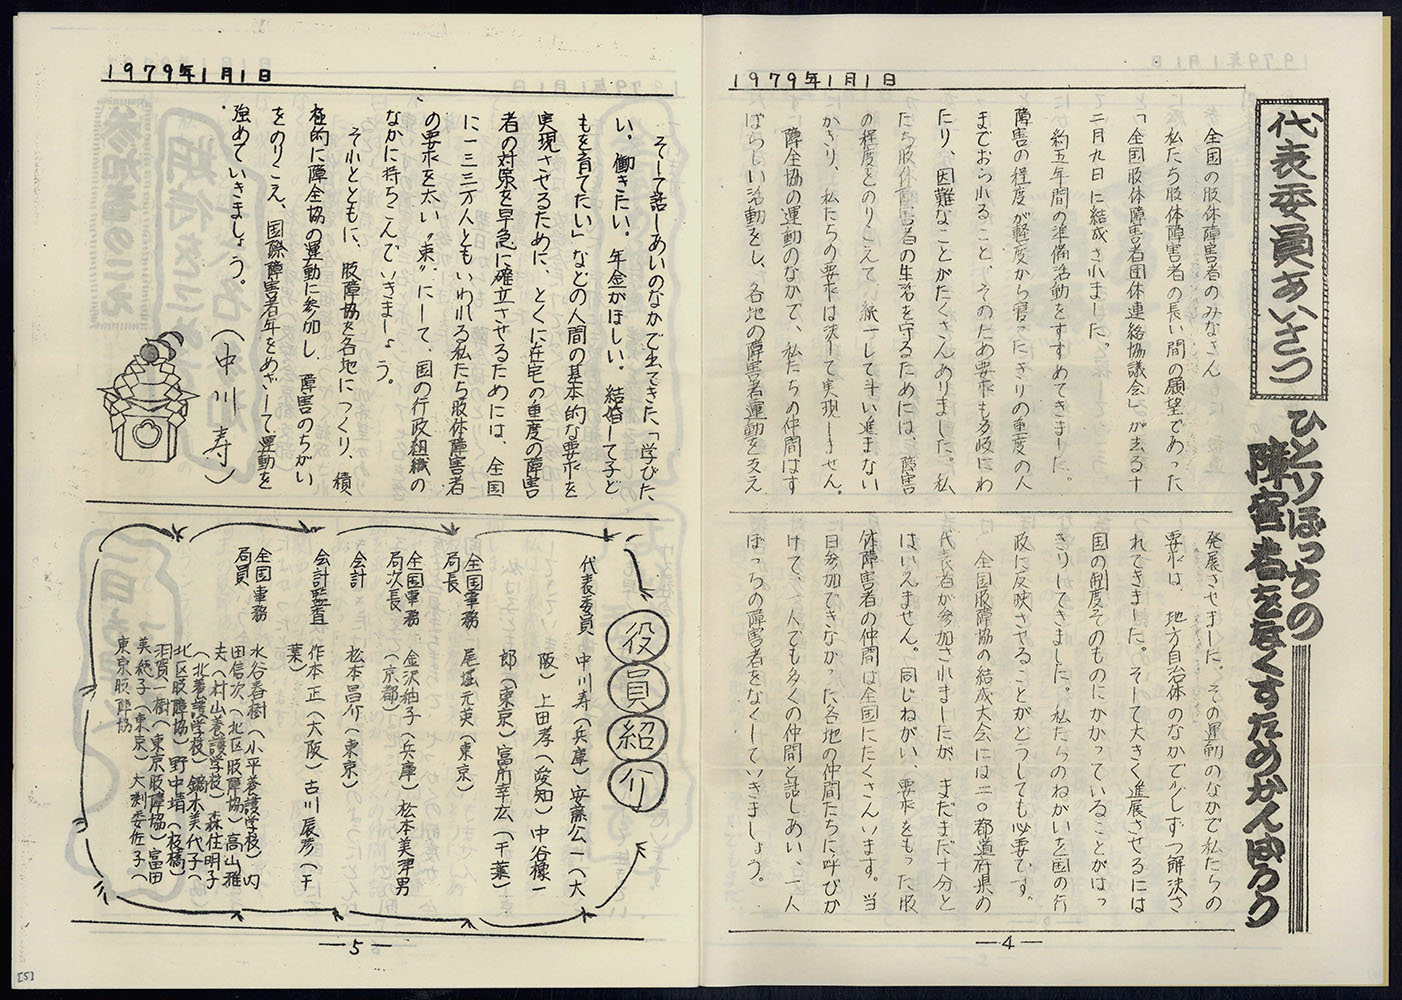 1979年1月1日
代表委員あいさつ
ひとりぼっちの
障害者をなくすためがんばろう
全国の肢体障害者のみなさん
私たち肢体障害者の長い間の願望であった
「全国肢体障害者団体連絡協議会」が去る十
二月九日に結成されました。
約五年間の準備活動をすすめてきました。
障害の程度が軽度から寝たきりの重度の人
までおられること、そのため要求も多岐にわ
たり、困難なことがたくさんありました。私
たち肢体障害者の生活を守るためには、障害
の程度をのりこえて紙一して斗い進まない
かぎり、私たちの要求は決して実現しません。
障全協の運動のなかで、私たちの仲間はす
ばらしい活動をし、各地の障害者運動を支え
発展させました。その運動のなかで私たちの
要求は、地方自治体のなかで少しずつ解決さ
れてきました。そして大きく進展させるには
国の制度そのものにかかっていることがはっ
きりしてきました。私たちのねがいを国の行
政に反映させることがどうしても必要です。
全国肢障協の結成大会には二〇都道府県の
代表者が参加されましたが、まだまだ十分と
はいえません。同じねがい、要求をもった肢
体障害者の仲間は全国にたくさんいます。当
日参加できなかった各地の仲間たちに呼びか
けて、一人でも多くの仲間と話しあい、一人
ぼっちの障害者をなくしていきましょう。
—4—
1979年1月1日
そして話しあいのなかで出てきた、「学びた
い。働きたい。年金がほしい。結婚して子ど
もを育てたい」などの人間の基本的な要求を
実現させるために、とくに在宅の重度の障害
者の対策を早急に確立させるためには、全国
に一三三万人ともいわれる私たち肢体障害者
の要求を太い〝束〟にして、国の行政組織の
なかに持ちこんでいきましょう。
それとともに、肢障協を各地につくり、積
極的に障全協の運動に参加し、障害のちがい
をのりこえ、国際障害者年をめざして運動を
強めていきましょう。
(中川 寿)
役員紹介
代表委員 中川寿(兵庫)安藤公一(大
阪)上田孝(愛知)中谷橡一
郎(東京)富所幸広(千葉)
全国事務
局長 尾堀元英(東京)
全国事務
局次長 金沢紬子(兵庫)松本美津男
(京都)
会計 松本昌介(東京)
会計監査 作本正(大阪)古川辰彦(千
葉)
全国事務
局員 水谷春樹(小平養護学校)内
田信次(北区肢障協)高山雅
夫(村山養護学校)森住明子
(北養護学校)鏑木美代子(
北区肢障協)野中靖(板橋)
羽賀一樹(東京肢障協)富田
美穂子(東京)大割委佐子(
東京肢障協
—5—
[5]